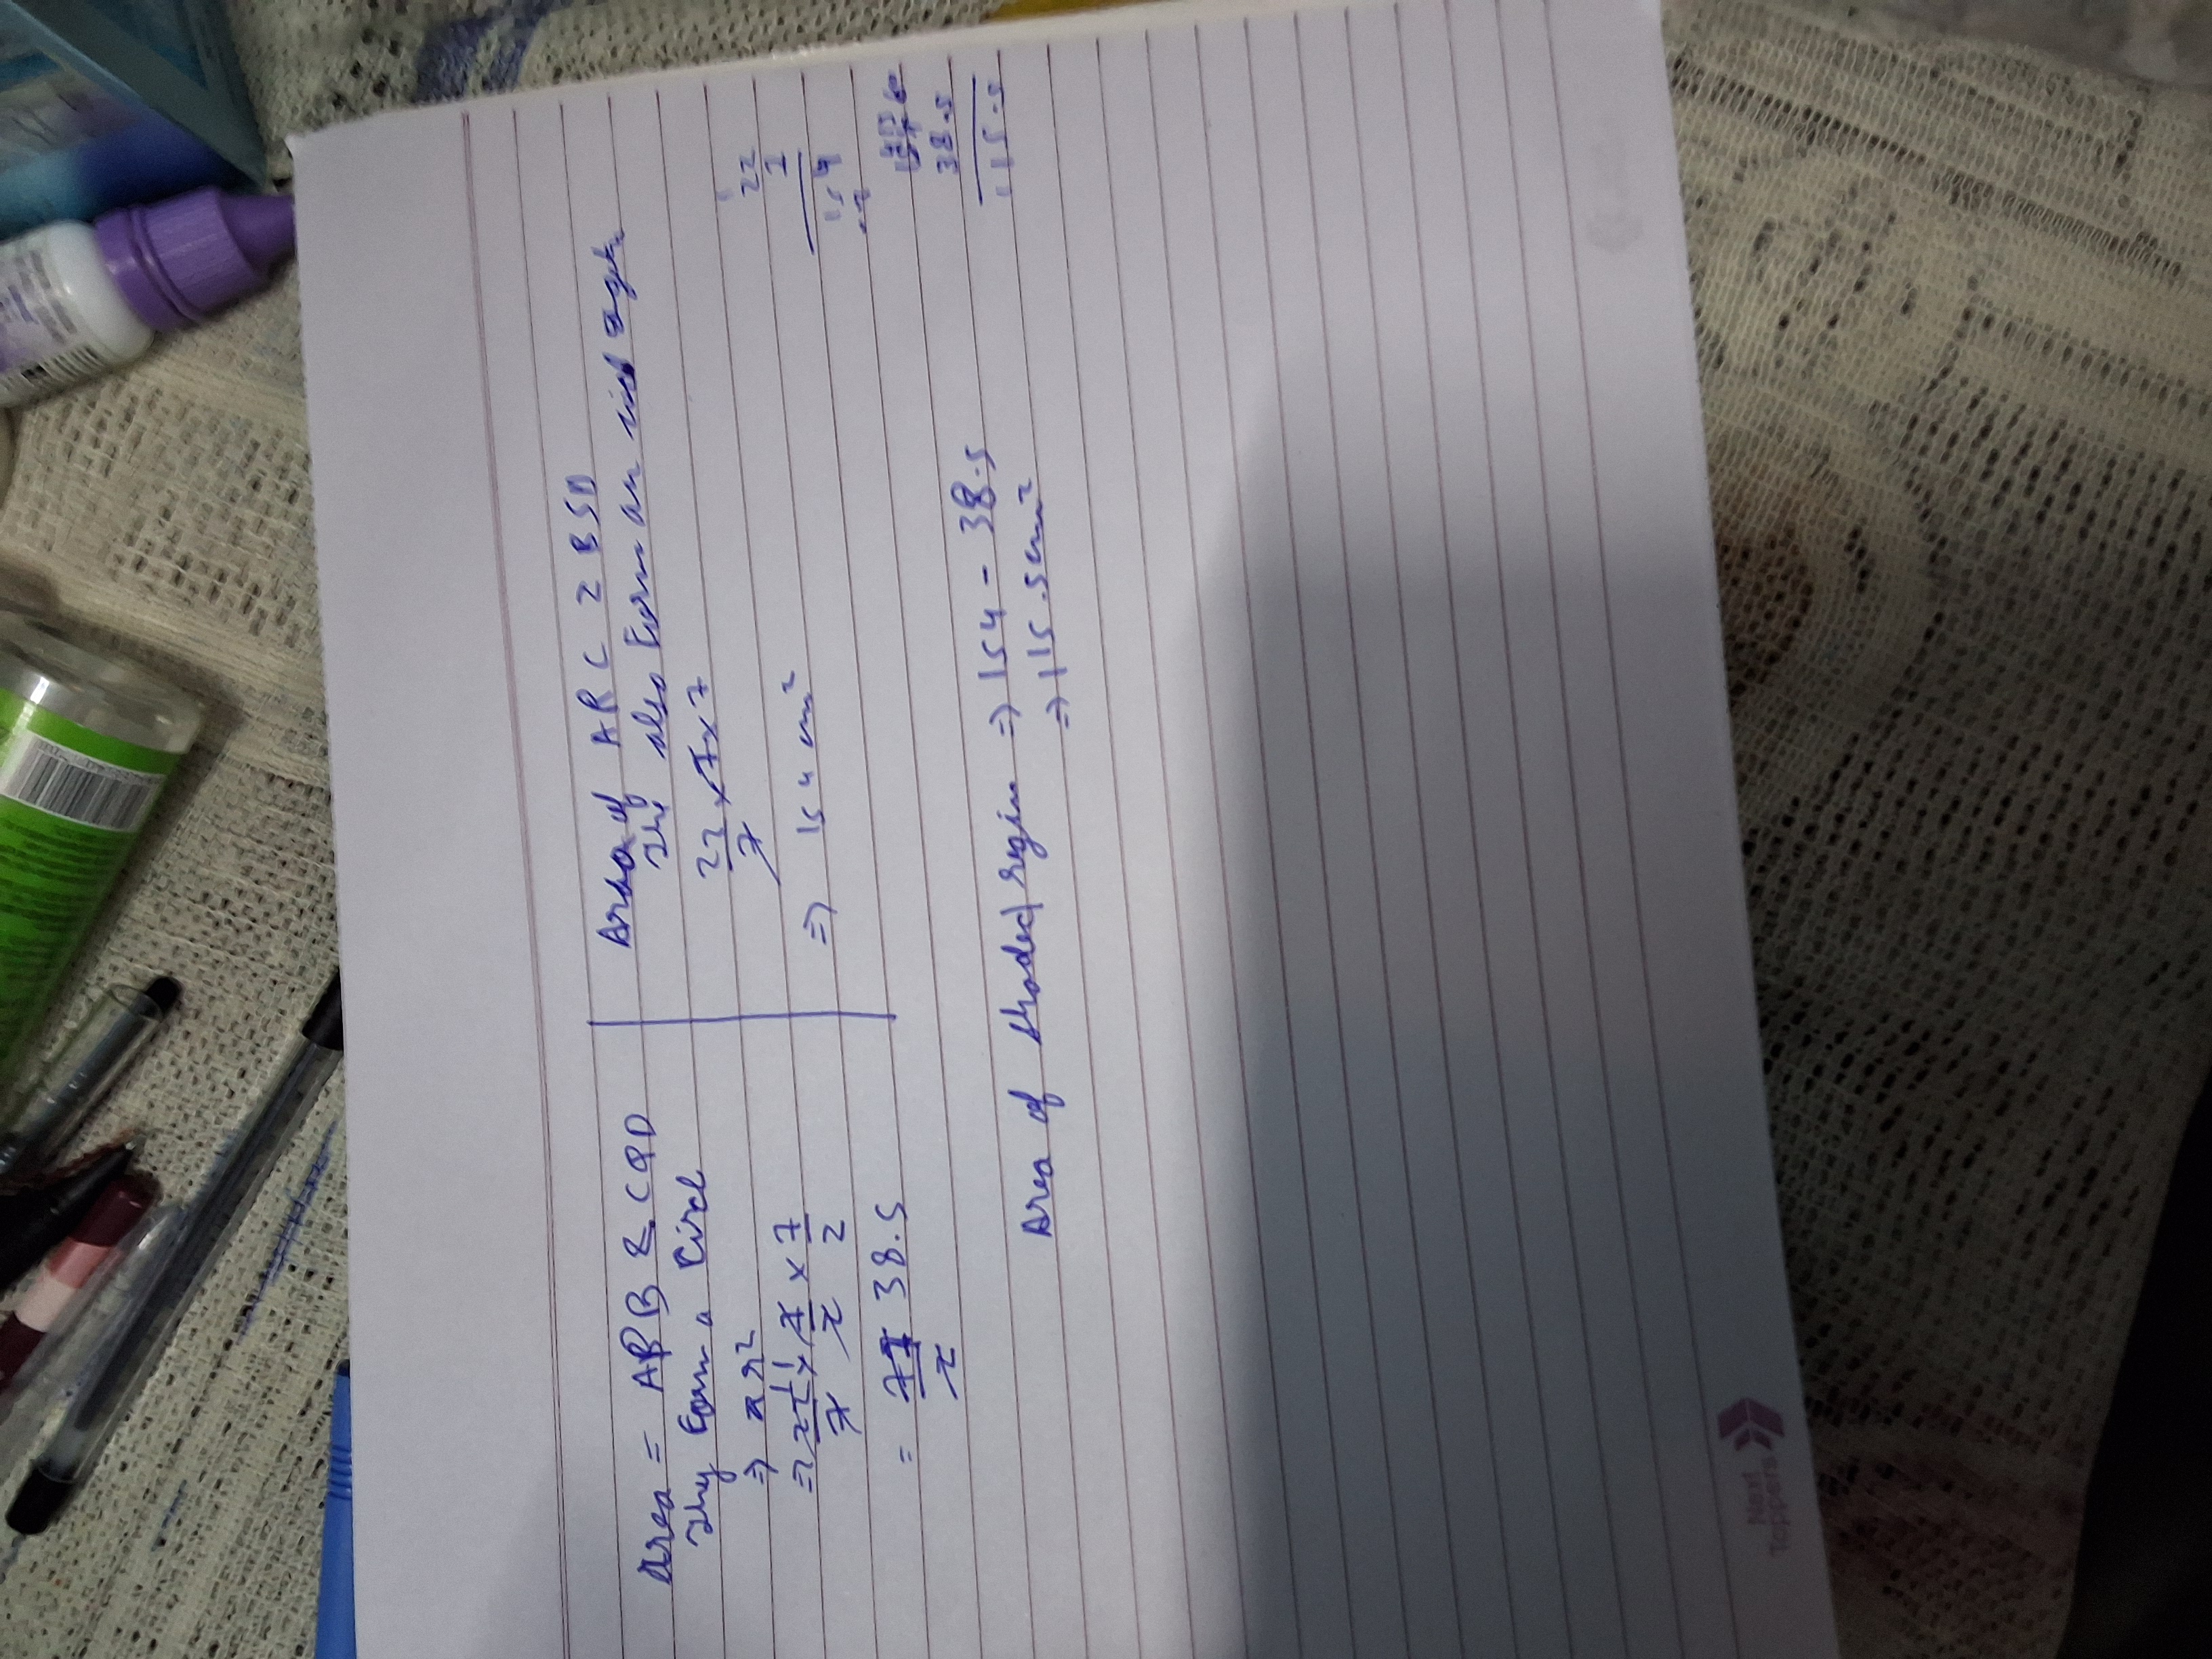 Area = APB & CQD
They Form a Circl
⇒ πr²
⇒ 22 11 × 7 × 7
7 2 2
= 77 38.5
2
Area of ARC & BSD
also Form an
22 × 7 × 7
7
⇒ 154 cm²
22
7
154
38.5
115.5
Area of shaded region ⇒ 154 - 38.5
⇒ 115.5cm²
Next
Toppers